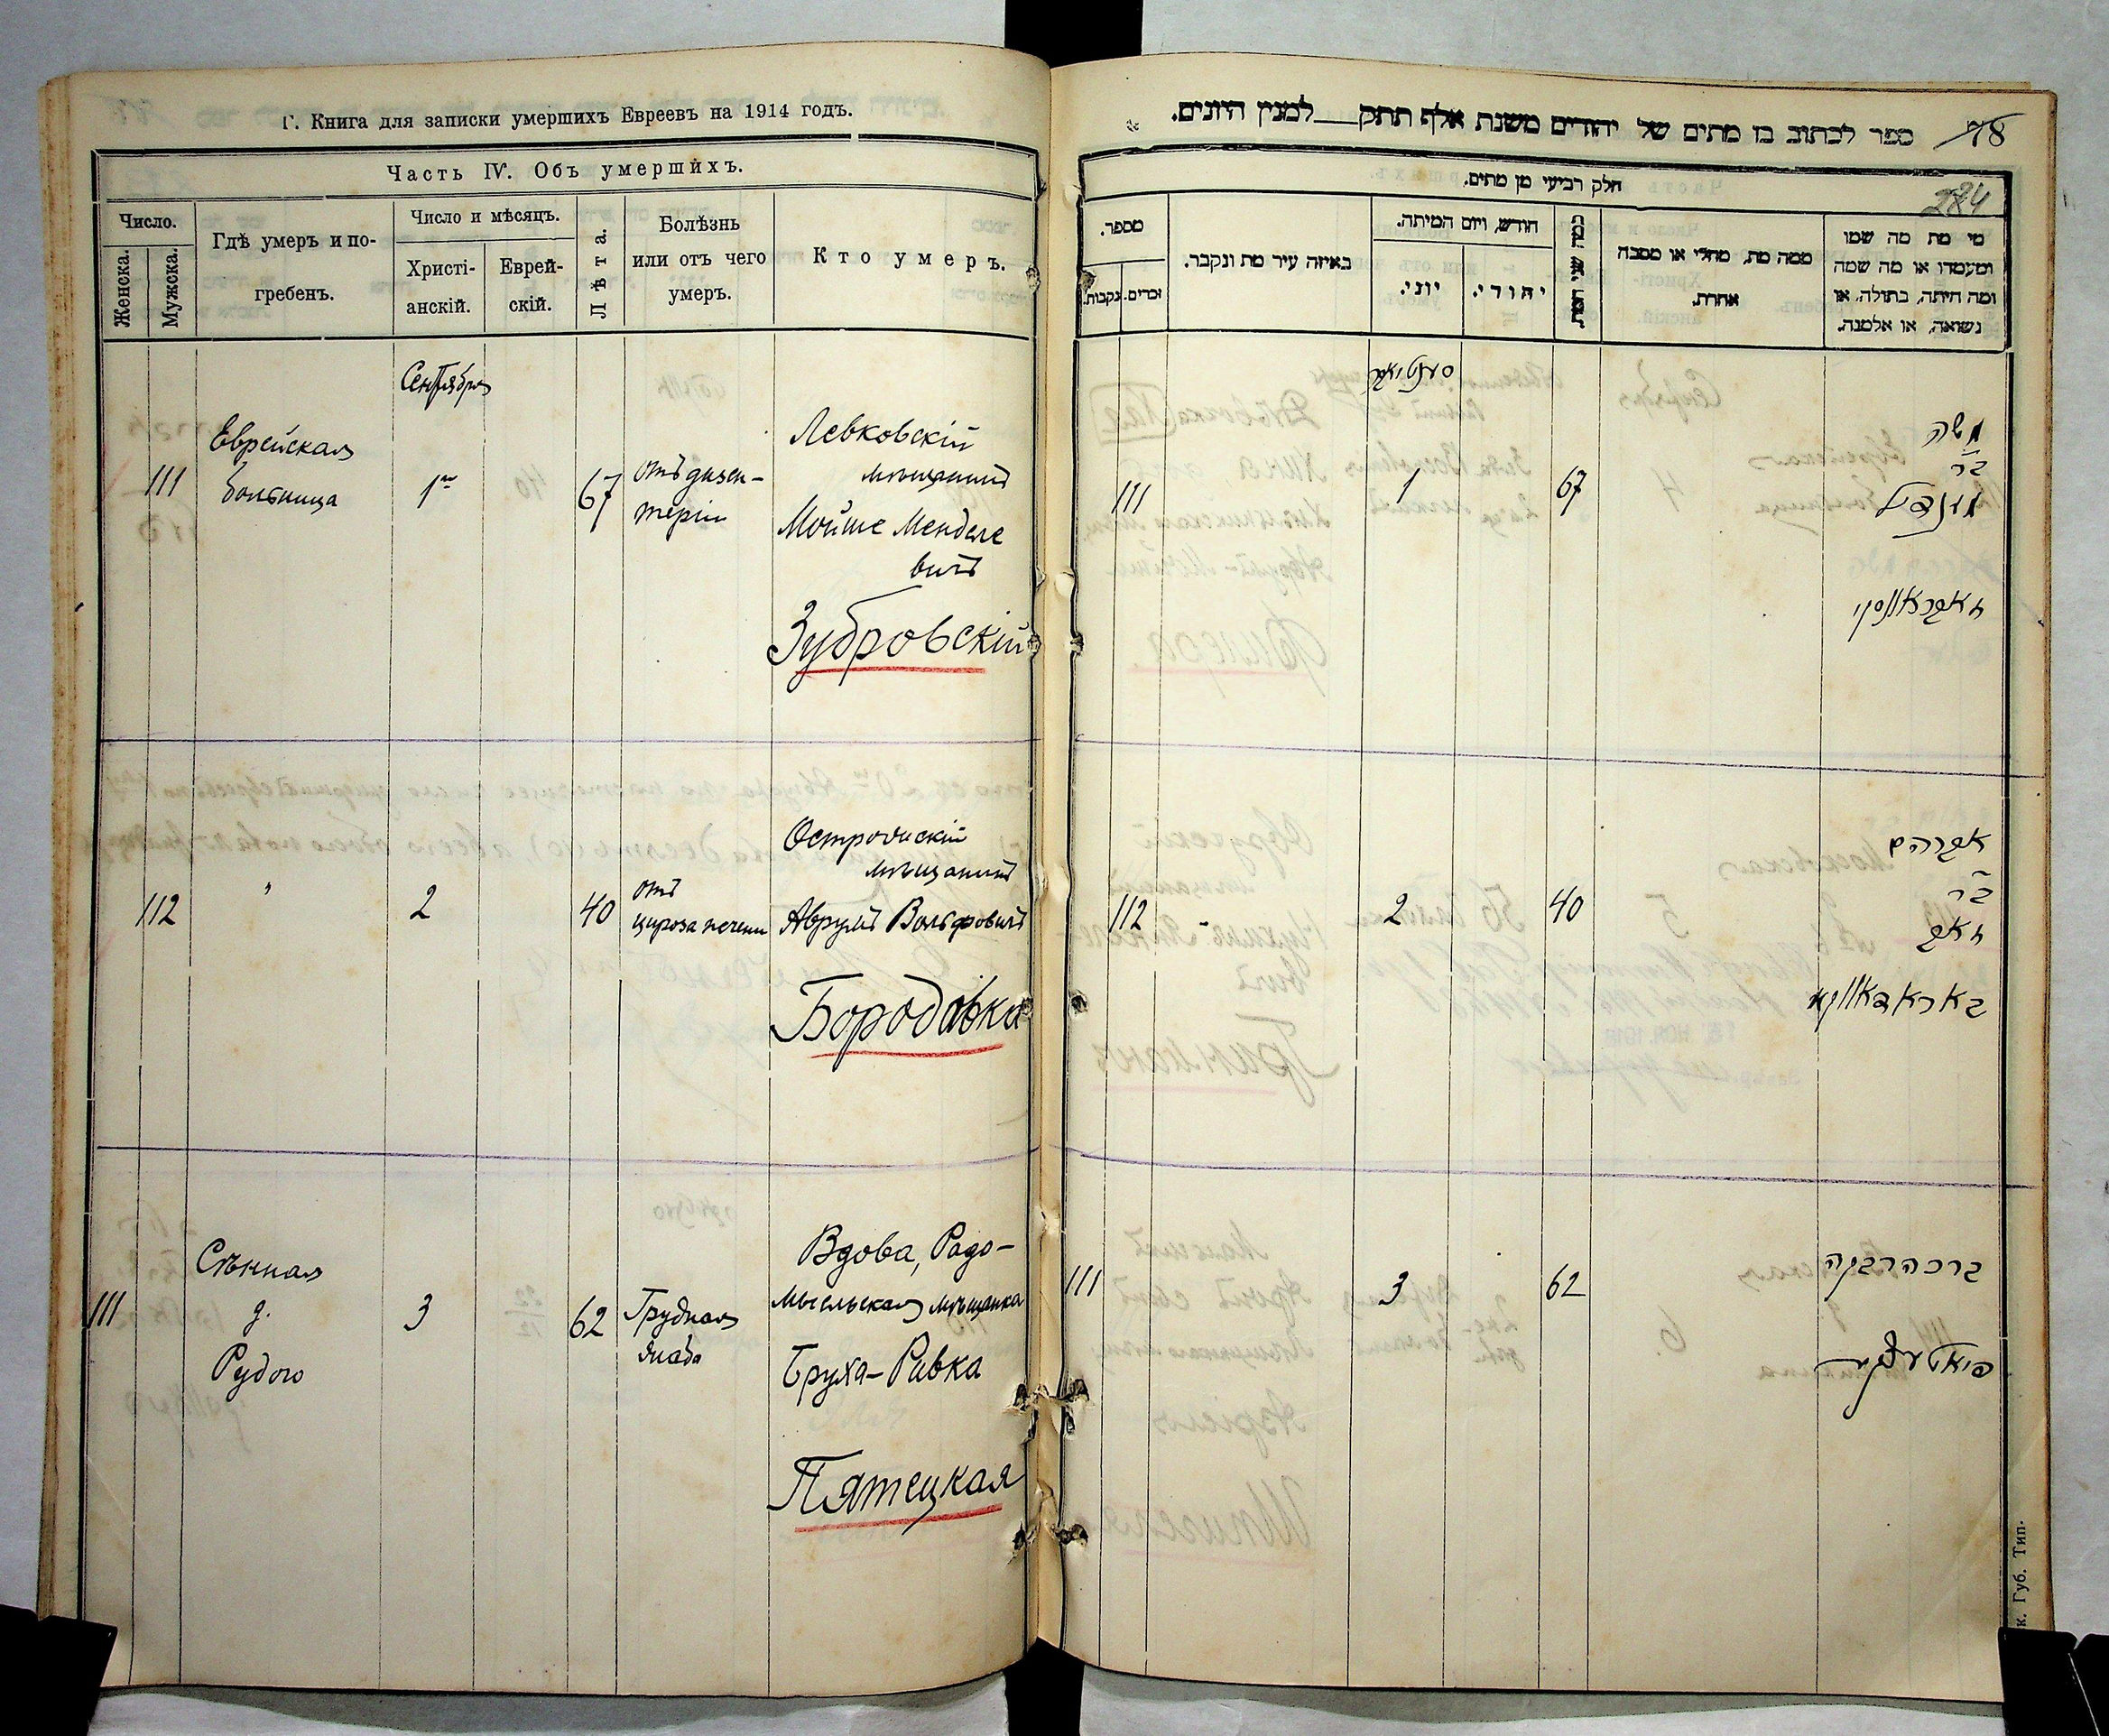 Г. Книга для записки умершихъ Евреевъ на 1914 годъ.
Часть IV. Объ умершихъ.
Число.
Женска.
Мужска.
Гдѣ умеръ и по-
гребенъ.
Число и мѣсяцъ.
Христі-
анскій.
Еврей-
скій.
Лѣта.
Болѣзнь
или отъ чего
умеръ.
Кто умеръ.
Сентября
111
Еврейская
больница
1го
67
отъ дизен-
теріи
Левковскій
мѣщанинъ
Мойше Менделе
вичъ
Зубровскій
112
"
2
40
отъ
цироза печени
мѣщанинъ
Аврумъ Вольфовичъ
Бородавка
111
Сѣнная
д.
Рудого
3
62
Грудная
жаба
Вдова, Радо-
мысльская мѣщанка
Бруха-Ривка
Пятецкая
ספר לכתוב בו מתים של יהודים משנת אלף תתק___למנין היונים.
78
284
חלק רביעי מן מתים.
מספר.
נקבות.
זכרים.
באיזה עיר מת ונקבר.
חודש, ויום המיתה.
יוני.
יהודי.
כמה שני המת.
ממה מת, מחלי או מסבה
אחרת.
מי מת מה שמו
ומעמדו או מה שמה
ומה היתה, בתולה, או
נשואה, או אלמנה.
111
1
67
משה
בר
מענדיל
112
2
40
אברהם
בר
זאב
באראדאווקא
111
3
62
ברכה רבקה
к. Губ. Тип.